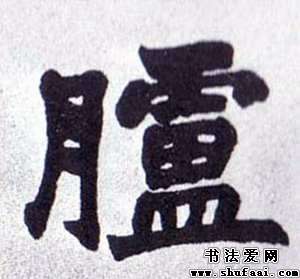 臚
书法爱网
www.shufaai.com